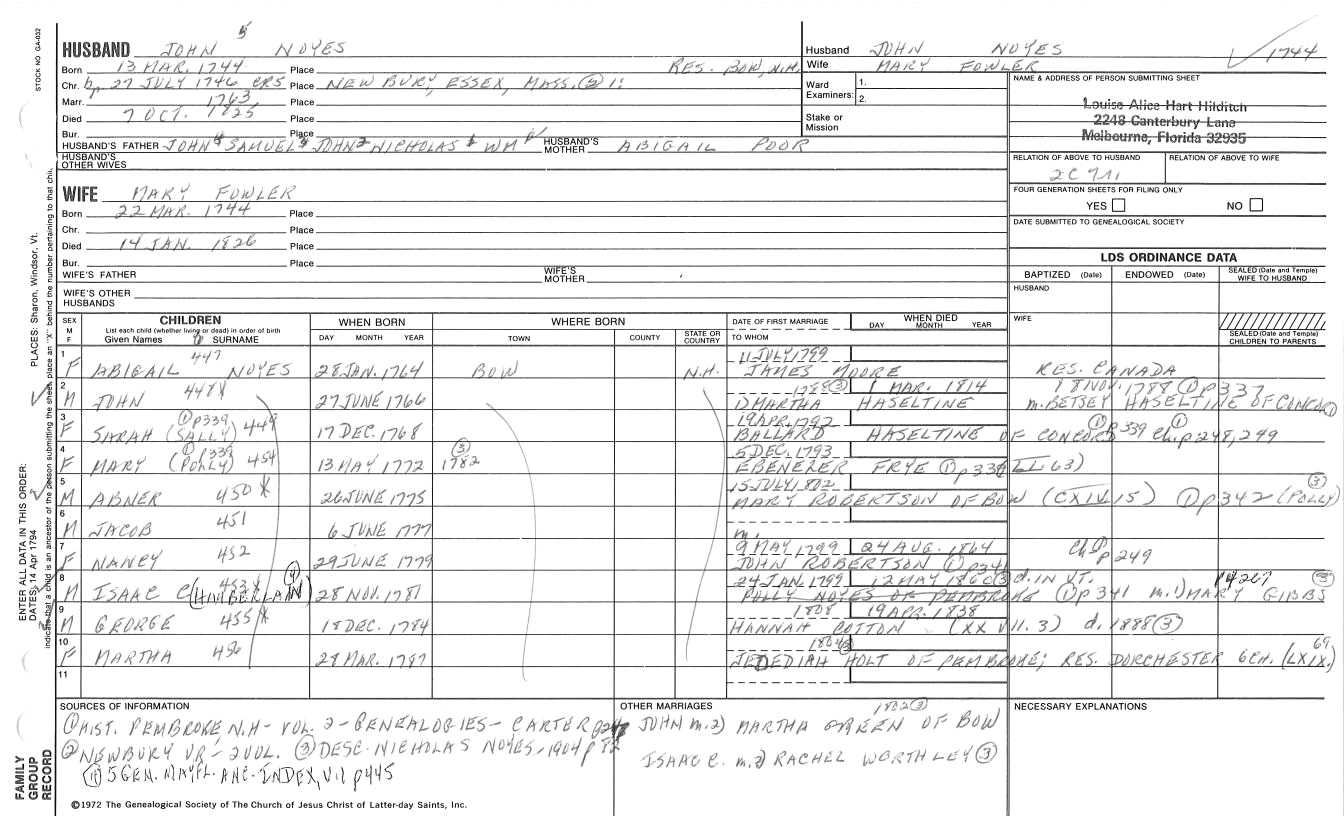 STOCK NO GA-032
5
HUSBAND JOHN NOYES
Born 13 MAR. 1744 Place RES. BOW, N.H.
Chr. bp 27 JULY 1746 CRS Place NEWBURY, ESSEX, MASS. ② 1:
Marr. 1763 Place
Died 7 OCT. 1825 Place
Bur. Place
HUSBAND'S FATHER JOHN 4 SAMUEL 3 JOHN 2 NICHOLAS 1 WM HUSBAND'S MOTHER ABIGAIL POOR
HUSBAND'S OTHER WIVES
Husband JOHN NOYES 1744
Wife MARY FOWLER
Ward Examiners: 1. 2.
Stake or Mission
NAME & ADDRESS OF PERSON SUBMITTING SHEET
Louise Alice Hart Hilditch
2248 Canterbury Lane
Melbourne, Florida 32935
RELATION OF ABOVE TO HUSBAND RELATION OF ABOVE TO WIFE
FOUR GENERATION SHEETS FOR FILING ONLY
YES NO
DATE SUBMITTED TO GENEALOGICAL SOCIETY
WIFE MARY FOWLER
Born 22 MAR. 1744 Place
Chr. Place
Died 14 JAN. 1826 Place
Bur. Place
WIFE'S FATHER WIFE'S MOTHER
WIFE'S OTHER HUSBANDS
LDS ORDINANCE DATA
BAPTIZED (Date) ENDOWED (Date) SEALED (Date and Temple) WIFE TO HUSBAND
HUSBAND
WIFE
SEALED (Date and Temple) CHILDREN TO PARENTS
SEX M F
CHILDREN
List each child (whether living or dead) in order of birth
Given Names SURNAME
WHEN BORN
DAY MONTH YEAR
WHERE BORN
TOWN COUNTY STATE OR COUNTRY
DATE OF FIRST MARRIAGE
TO WHOM
WHEN DIED
DAY MONTH YEAR
1 F ABIGAIL 447 NOYES 28 JAN. 1764 BOW N.H. 11 JULY 1799 JAMES MOORE RES. CANADA
2 M JOHN 448X 27 JUNE 1766 1788 ③ 1 MAR. 1814 1) MARTHA HASELTINE 18 NOV. 1788 ① p337 m. BETSEY HASELTINE OF CONCORD ①
3 F SARAH (SALLY) ① p339 449 17 DEC. 1768 19 APR. 1792 BALLARD HASELTINE OF CONCORD ① p339 Ch. ① p248, 249
4 F MARY (POLLY) ① p339 454 13 MAY 1772 ③ 1782 5 DEC. 1793 EBENEZER FRYE ① p339 (LL 63)
5 M ABNER 450 X 26 JUNE 1775 15 JULY 1802 MARY ROBERTSON OF BOW (CXIV 15) ① p342 (POLLY) ③
6 M JACOB 451 6 JUNE 1777 m.
7 F NANCY 452 29 JUNE 1779 9 MAY 1799 24 AUG. 1864 JOHN ROBERTSON ① p341 Ch ① p249
8 M ISAAC C (HAMBERLAIN) 453X ④ 28 NOV. 1781 24 JAN. 1799 12 MAY 1860 ③ d. IN VT. POLLY NOYES OF PEMBROKE ① p341 m. 1) MARY GIBBS p4267 ③
9 M GEORGE 455 X 18 DEC. 1784 1808 19 APR. 1838 HANNAH COTTON (XX VII. 3) d. 1888 ③
10 F MARTHA 456 28 MAR. 1787 1804 ③ JEDEDIAH HOLT OF PEMBROKE; RES. DORCHESTER 6 CH. (LXIX.) 69
11
SOURCES OF INFORMATION
① HIST. PEMBROKE N.H - VOL. 2 - GENEALOGIES - CARTER
② NEWBURY VR - 2 VOL. ③ DESC. NICHOLAS NOYES - 1904 p 72
④ 5 GEN. MAYFL. ANC. INDEX, V.1 p445
OTHER MARRIAGES
JOHN m. 2) MARTHA GREEN OF BOW 1802 ③
ISAAC C. m. 2) RACHEL WORTHLEY ③
NECESSARY EXPLANATIONS
©1972 The Genealogical Society of The Church of Jesus Christ of Latter-day Saints, Inc.
FAMILY GROUP RECORD
ENTER ALL DATA IN THIS ORDER:
DATES: 14 Apr 1794
PLACES: Sharon, Windsor, Vt.
indicate that a child is an ancestor of the person submitting the sheet, place an "X" behind the number pertaining to that chil,